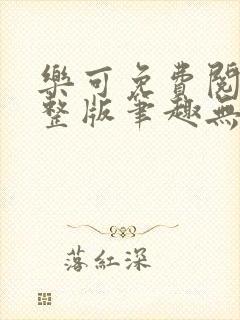 樂可免費閱
整版筆趣無
落紅深